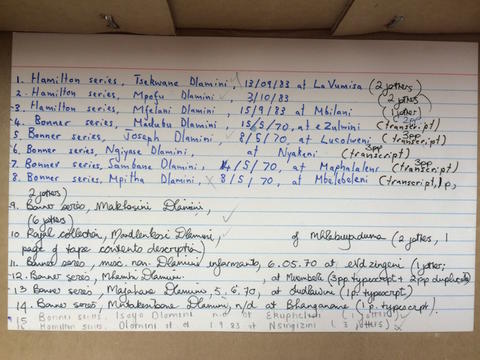 1. Hamilton series, Tsekwane Dlamini, 13/09/83 at La Vumisa (2 jotters)
2. Hamilton series, Mpofu Dlamini 3/10/83 (2 jotters)
3. Hamilton series, Mfelani Dlamini, 15/9/83 at Mbilani (1 jotter)
4. Bonner series, Madubu Dlamini, 15/5/70, at eZulwini (transcript)
5. Bonner series, Joseph Dlamini, 8/5/70, at Lusolweni (transcript) 3pp
6. Bonner series, Ngiyase Dlamini, at Nyakeni (transcript) 3pp
7. Bonner series, Sambane Dlamini, 14/5/70, at Maphalaleni (transcript) 3pp
8. Bonner series, Mpitha Dlamini, 8/5/70, at Mbelebeleni (transcript, 1p,
2 jotters)
9. Bonner series, Makhosini Dlamini,
(6 jotters)
10. Royal collection, Mndlenkosi Dlamini, of (2 jotters, 1
page of tape contents description)
11. Bonner series, misc. non-Dlamini informants, 6.05.70 at eNdzingeni (1 jotter;
12. Bonner series, Mhambi Dlamini, at (3pp typescript + 2pp duplicate)
13. Bonner series, Majahane Dlamini, 5.6.70, at (1p. typescript)
14. Bonner series, Dlamini, n/d at Bhanganane (1p. typescript)
15 Bonner series, Dlamini n.d at (1 jotter)
16 Hamilton series, Dlamini 1 9 83 at Nsingizini (3 jotters)